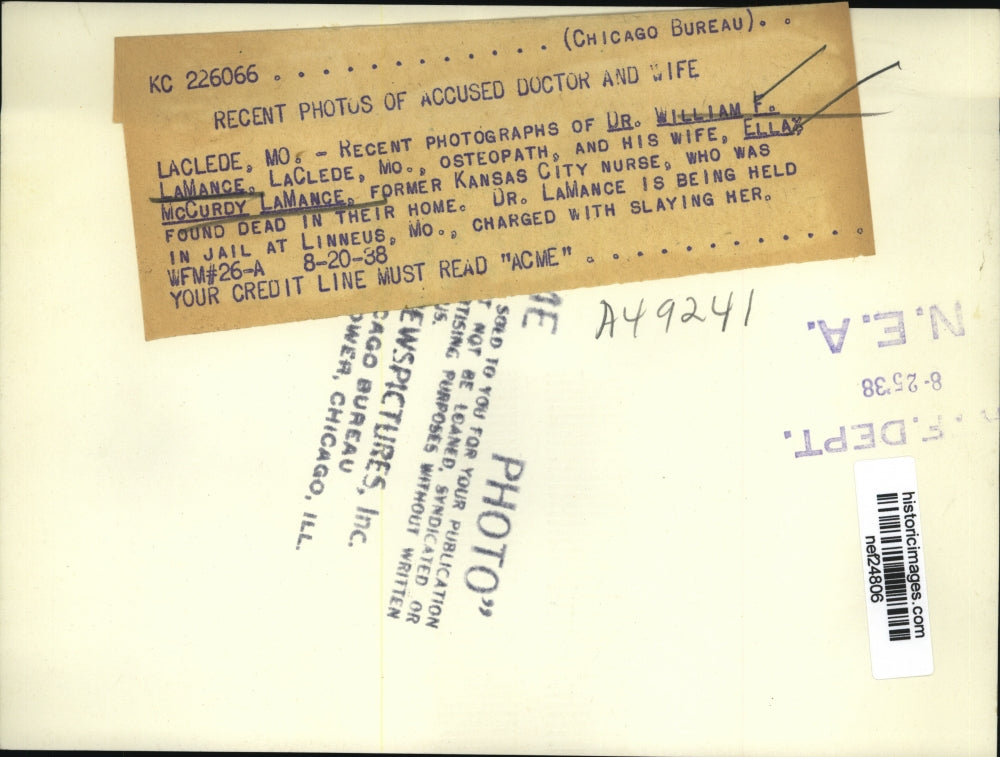 KC 226066 . . . . . . . . . . . . . (CHICAGO BUREAU). .
RECENT PHOTOS OF ACCUSED DOCTOR AND WIFE
LACLEDE, MO. - RECENT PHOTOGRAPHS OF DR. WILLIAM F.
LAMANCE, LACLEDE, MO., OSTEOPATH, AND HIS WIFE, ELLA
MCCURDY LAMANCE, FORMER KANSAS CITY NURSE, WHO WAS
FOUND DEAD IN THEIR HOME. DR. LAMANCE IS BEING HELD
IN JAIL AT LINNEUS, MO., CHARGED WITH SLAYING HER.
WFM#26-A 8-20-38
YOUR CREDIT LINE MUST READ "ACME" . . . . . . . . . . .
A49241
N.E.A.
8-25'38
F. DEPT.
ME
PHOTO"
SOLD TO YOU FOR YOUR PUBLICATION
NOT BE LOANED, SYNDICATED OR
TISING PURPOSES WITHOUT WRITTEN
EWSPICTURES, Inc.
CAGO BUREAU
OWER, CHICAGO, ILL.
historicimages.com
nef24806